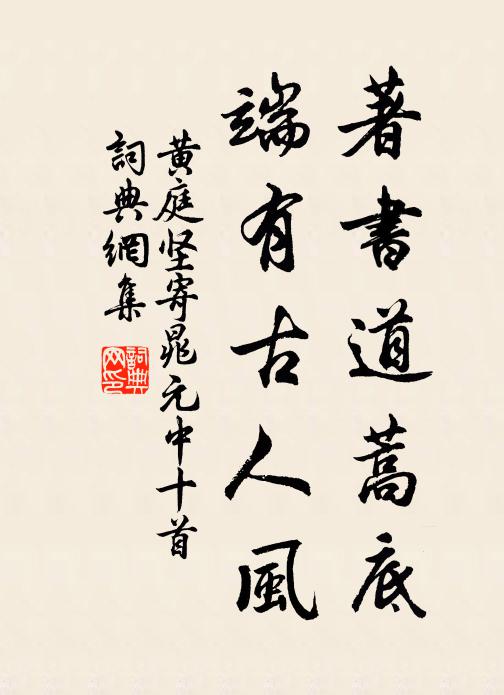 著書道蒿底
端有古人風
黄庭坚寄晁元中十首
詞典網集
詞典网印